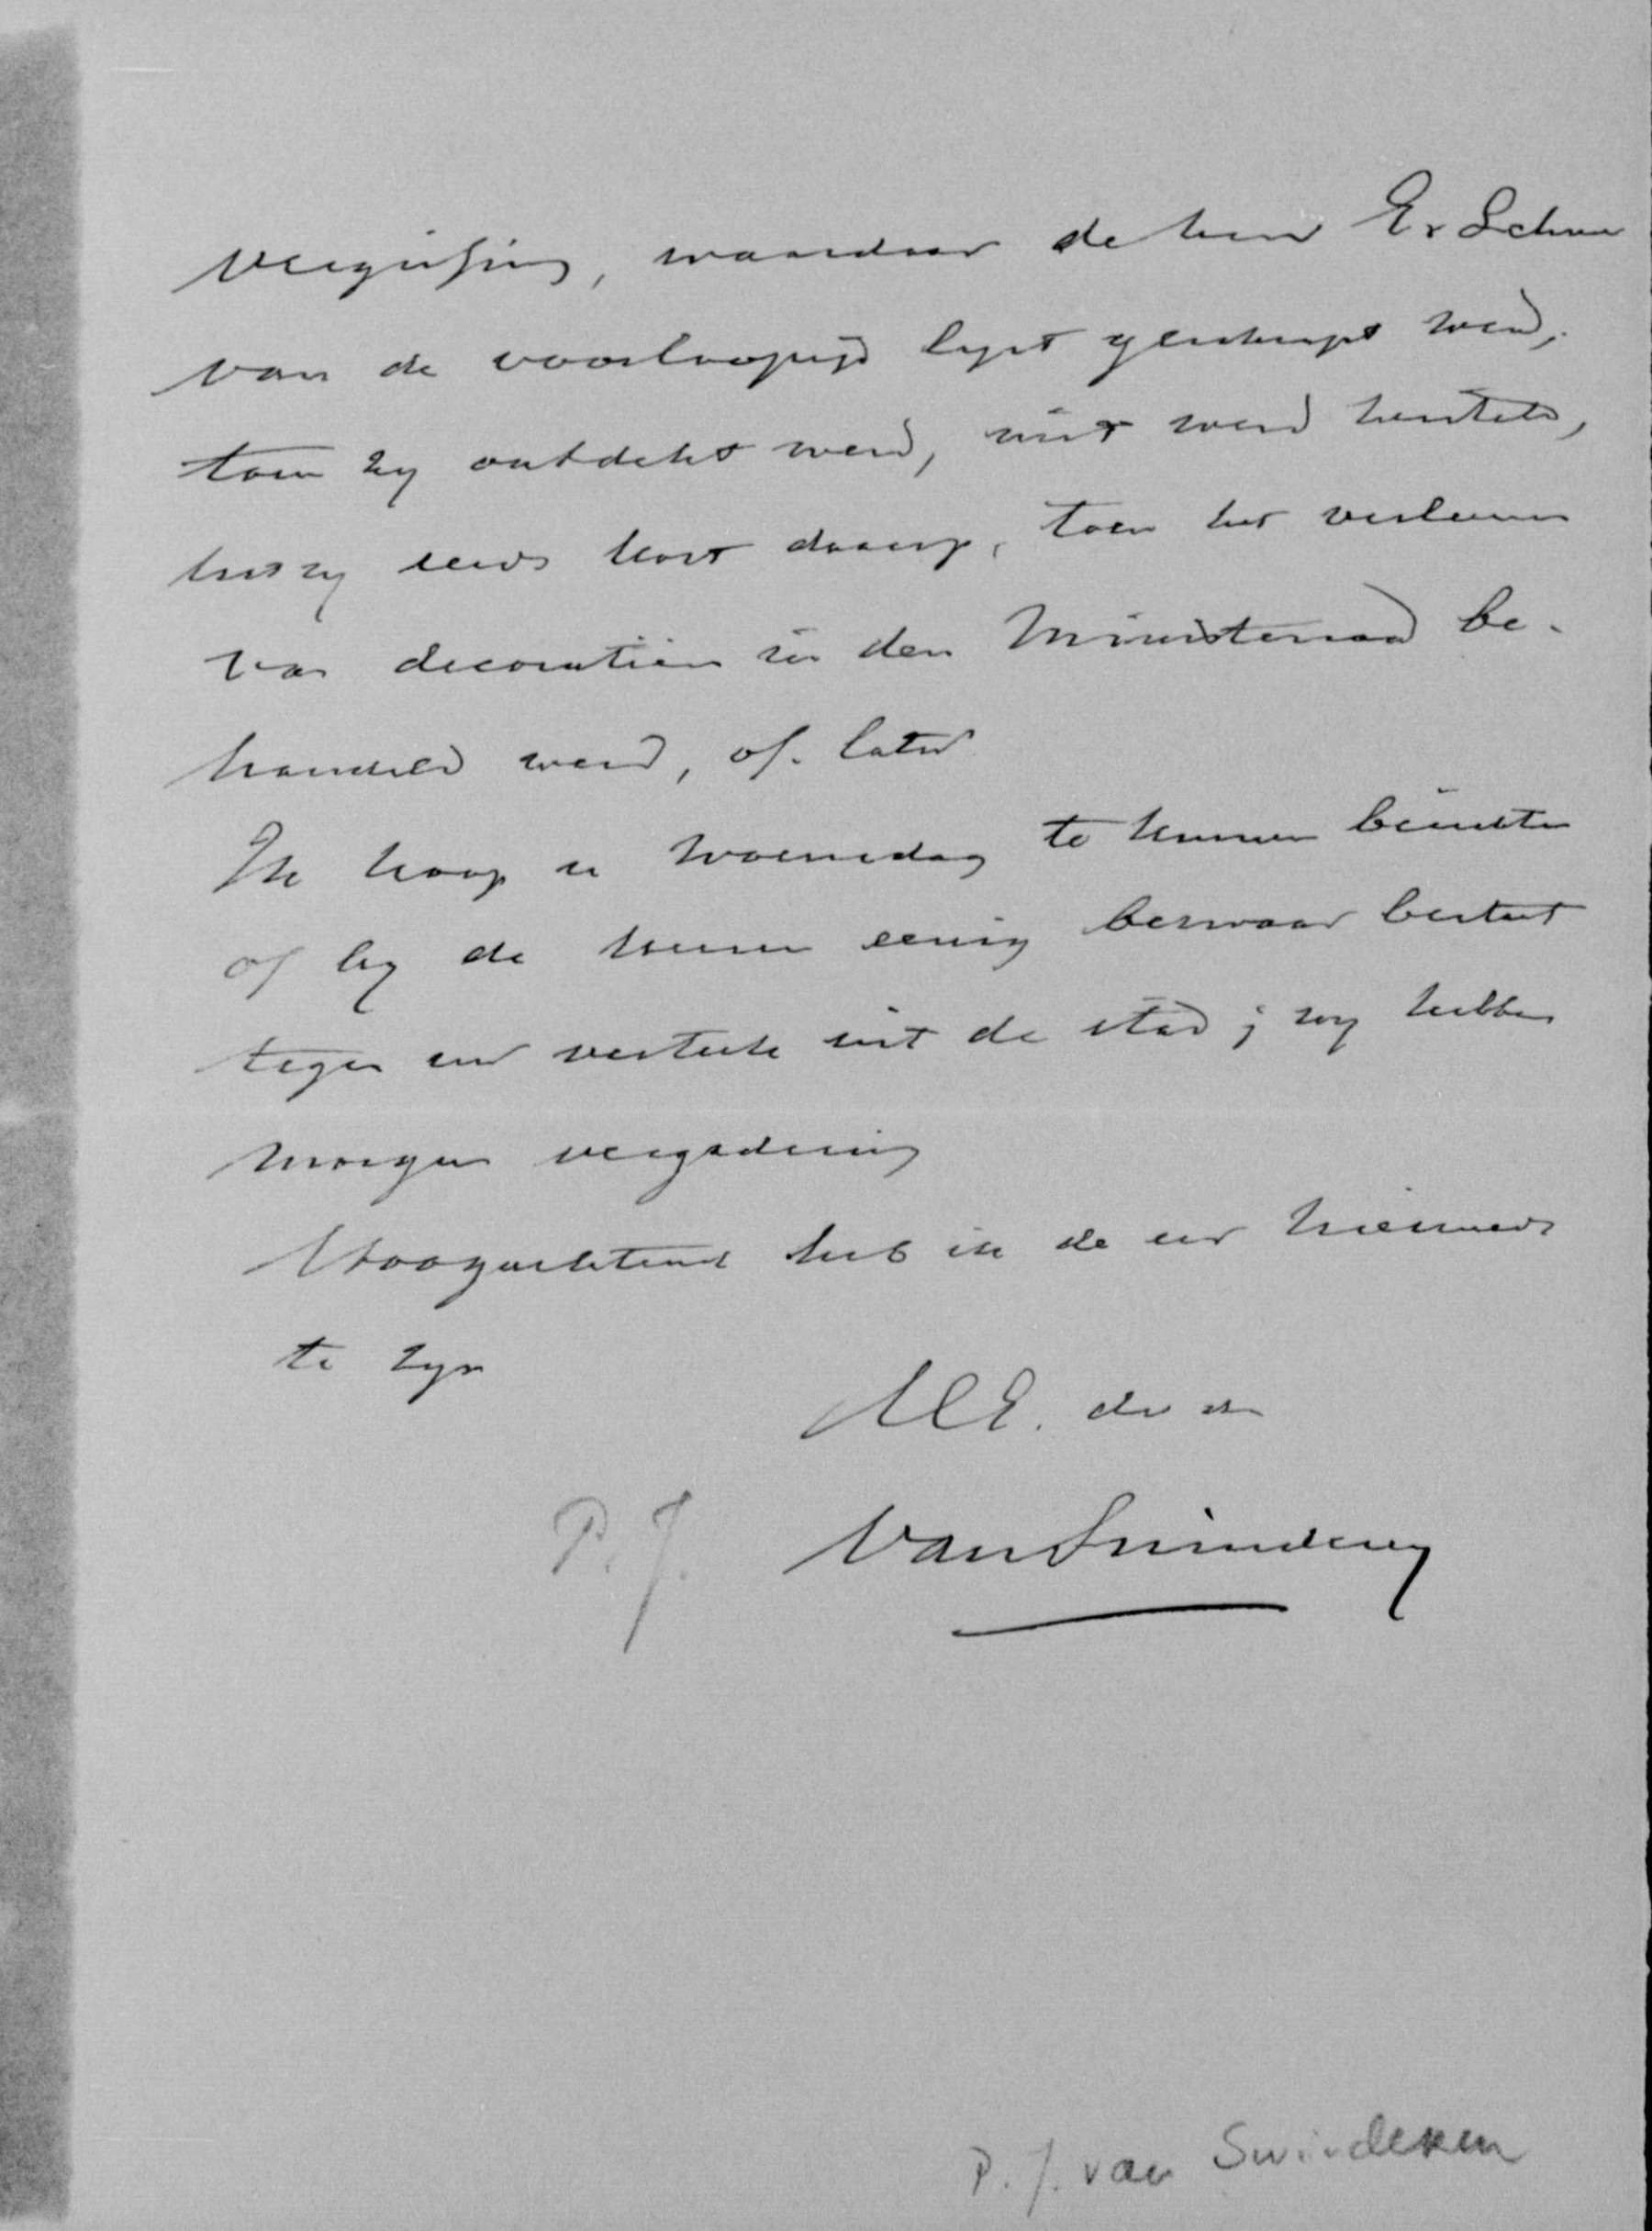 vergissing, waardoor de heer E. Schur
van de voorloopige lyst geschrapt werd,
toen zy ontdekt werd, niet werd hersteld,
hetzy reeds kort daarop, toen het verleenen
van decoratiën in den Ministerraad be-
handeld werd, of later
Ik hoop u Woensdag te kunnen berichten
of by de heeren eenig bezwaar bestaat
tegen uw vertrek uit de stad; wy hebben
morgen vergadering
Hoogachtend heb ik de eer hiermede
te zyn
UEE. dw dn
P. J. van Swinderen
P. J. van Swinderen